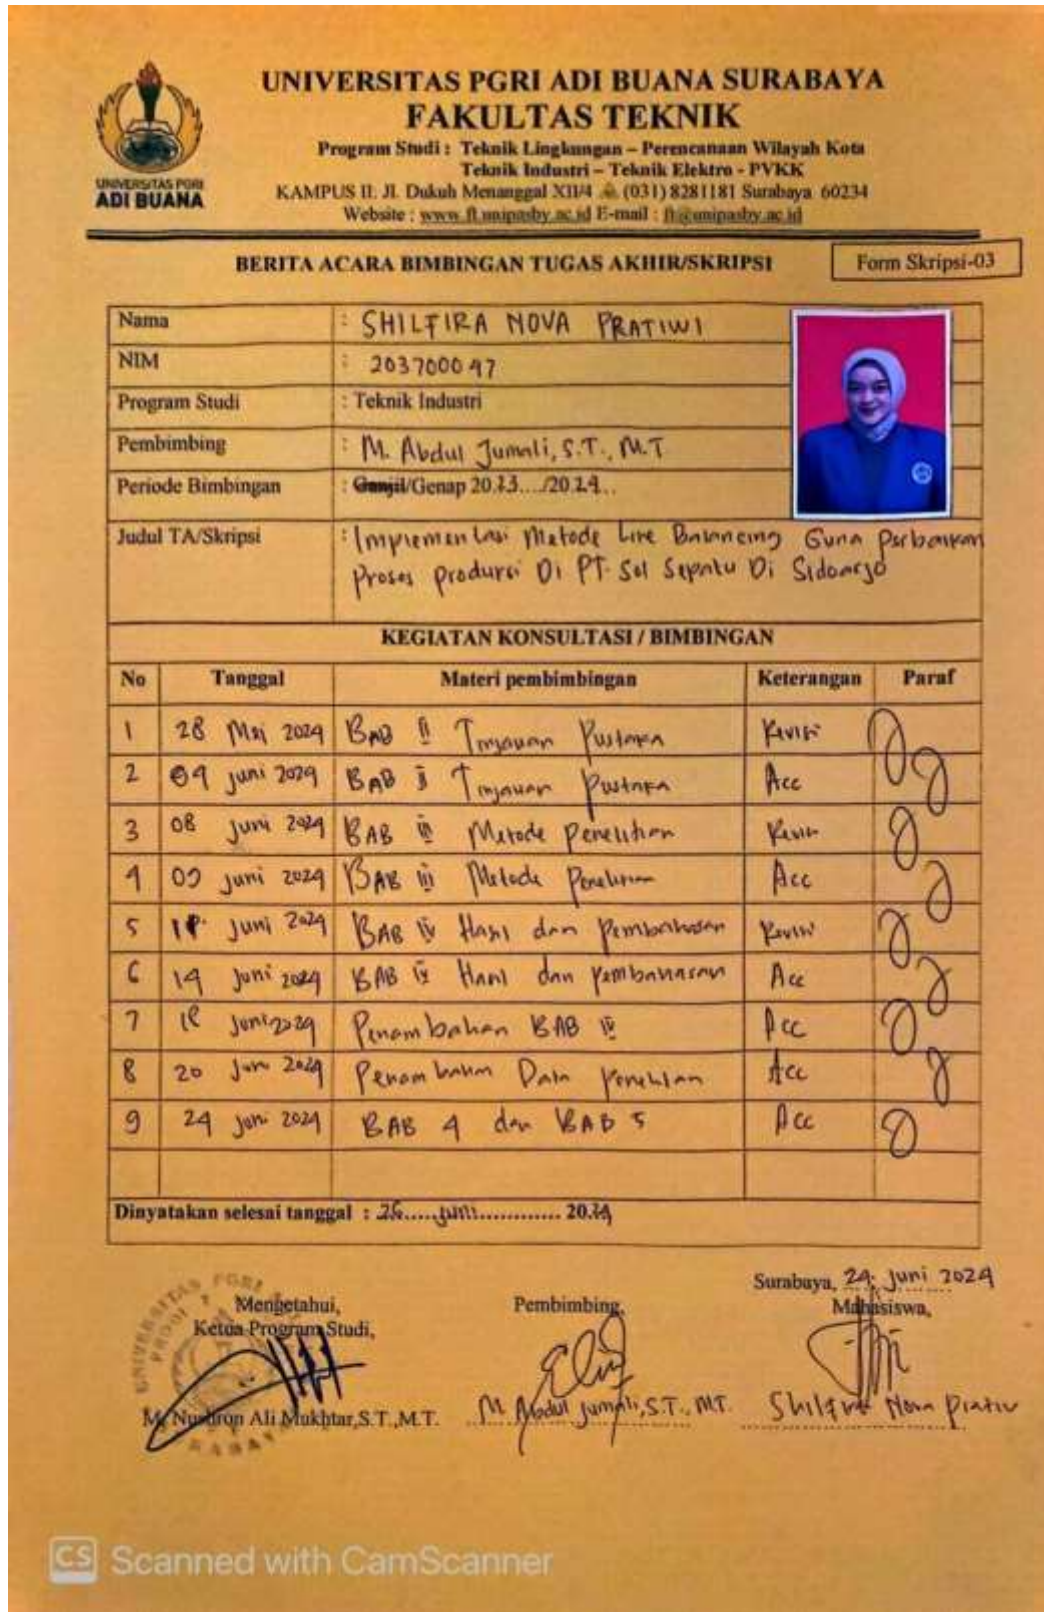 UNIVERSITAS PGRI ADI BUANA SURABAYA
FAKULTAS TEKNIK
Program Studi : Teknik Lingkungan – Perencanaan Wilayah Kota
Teknik Industri – Teknik Elektro - PVKK
KAMPUS II: Jl. Dukuh Menanggal XII/4 (031) 8281181 Surabaya 60234
Website : www.ft.unipasby.ac.id E-mail : ft@unipasby.ac.id
UNIVERSITAS PGRI
ADI BUANA
BERITA ACARA BIMBINGAN TUGAS AKHIR/SKRIPSI
Form Skripsi-03
Nama : SHILFIRA NOVA PRATIWI
NIM : 203700047
Program Studi : Teknik Industri
Pembimbing : M. Abdul Jumali, S.T., M.T
Periode Bimbingan : Ganjil/Genap 20.23..../20.24..
Judul TA/Skripsi : Implementasi Metode Line Balancing Guna Perbaikan
Proses Produksi Di PT. Sol Sepatu Di Sidoarjo
KEGIATAN KONSULTASI / BIMBINGAN
No Tanggal Materi pembimbingan Keterangan Paraf
1 28 Mei 2024 BAB II Tinjauan Pustaka Revisi
2 04 Juni 2024 BAB II Tinjauan Pustaka Acc
3 08 Juni 2024 BAB III Metode Penelitian Revisi
4 09 Juni 2024 BAB III Metode Penelitian Acc
5 Juni 2024 BAB IV Hasil dan Pembahasan Revisi
6 14 Juni 2024 BAB IV Hasil dan Pembahasan Acc
7 Juni 2024 Penambahan BAB IV Acc
8 20 Juni 2024 Penambahan Data Penelitian Acc
9 24 Juni 2024 BAB 4 dan BAB 5 Acc
Dinyatakan selesai tanggal : Juni 20.24
Surabaya, 24 Juni 2024
Mengetahui,
Ketua Program Studi,
Pembimbing,
Mahasiswa,
M. Nushron Ali Mukhtar, S.T., M.T.
M. Abdul Jumali, S.T., M.T.
Shilfira Nova Pratiw
CS Scanned with CamScanner